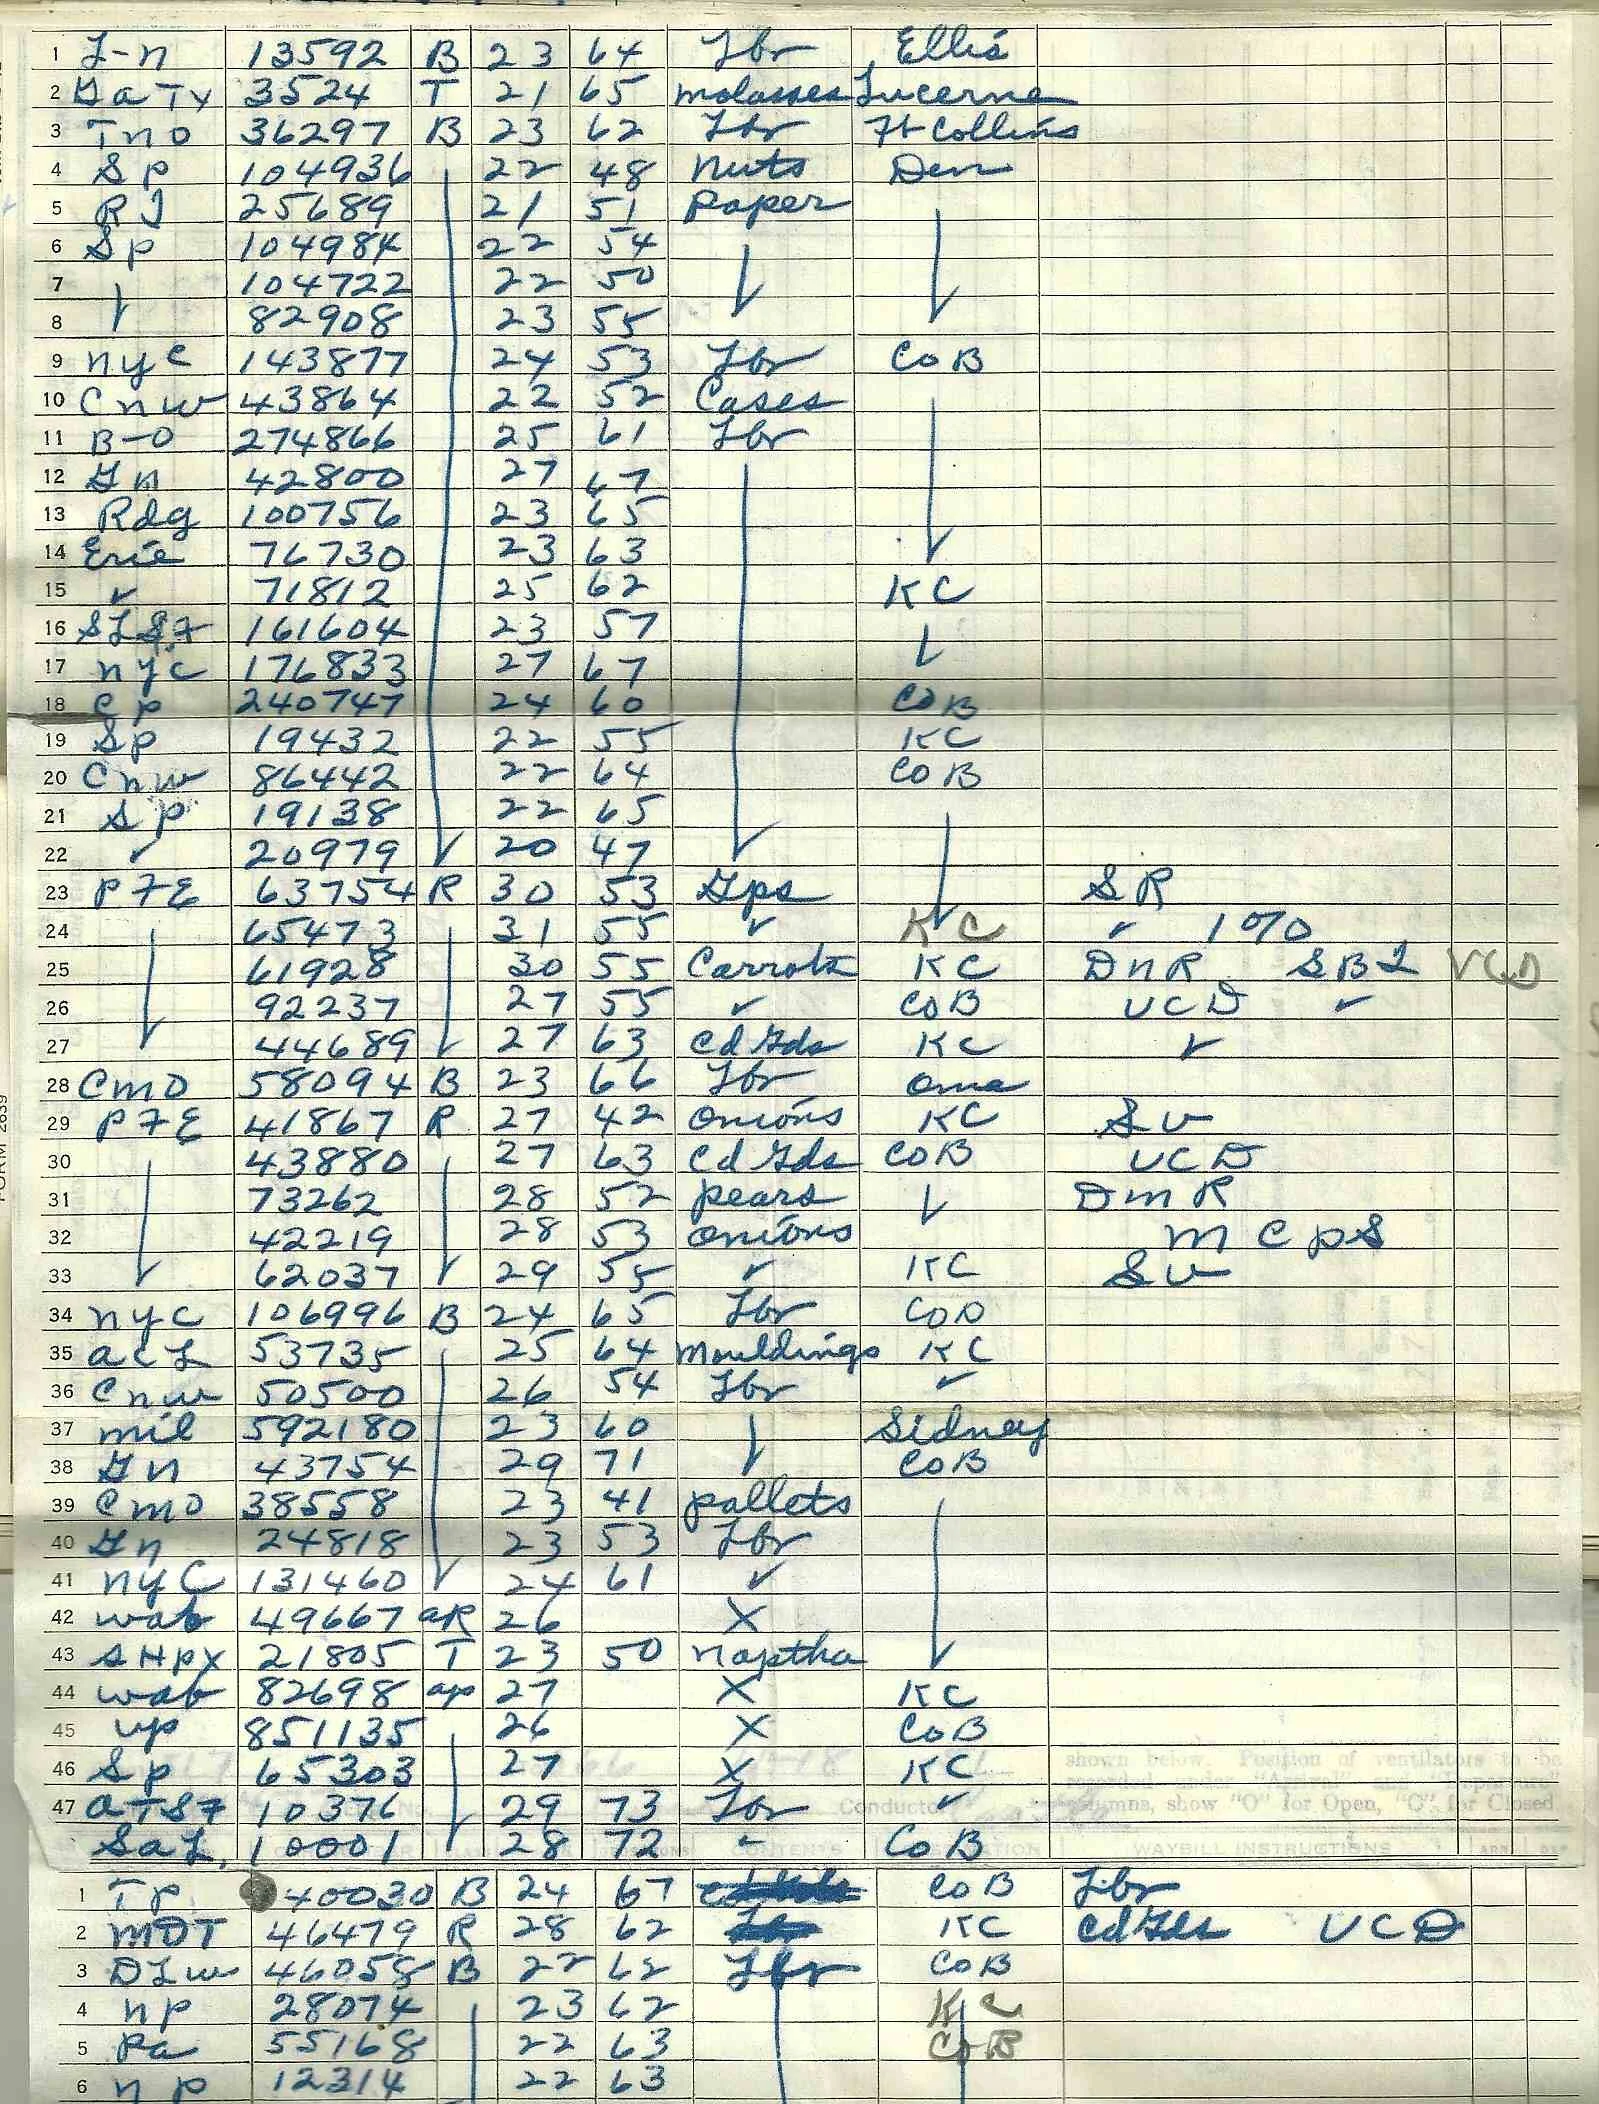 1 L-n 13592 B 23 64 Lbr Ellis
2 GaTx 3524 T 21 65 molasses Lucerne
3 Tno 36297 B 23 62 Lbr Ft Collins
4 Sp 104936 22 48 nuts Den
5 RI 25689 21 51 paper
6 Sp 104984 22 54
7 104722 22 50
8 82908 23 55
9 nyc 143877 24 53 Lbr CoB
10 Cnw 43864 22 52 Cases
11 B-O 274866 25 61 Lbr
12 Gn 42800 27 67
13 Rdg 100756 23 65
14 Erie 76730 23 63
15 ✓ 71812 25 62 KC
16 SLSF 161604 23 57
17 nyc 176833 27 67
18 Cp 240747 24 60 CoB
19 Sp 19432 22 55 KC
20 Cnw 86442 22 64 CoB
21 Sp 19138 22 65
22 ✓ 20979 20 47
23 PFE 63754 R 30 53 Gps SR
24 65473 31 55 ✓ KC ✓ 10%
25 61928 30 55 Carrots KC DnR SBL VCD
26 92237 27 55 ✓ CoB VCD ✓
27 44689 27 63 Cd Gds KC ✓
28 Cmo 58094 B 23 66 Lbr Oma
29 PFE 41867 R 27 42 Onions KC SV
30 43880 27 63 Cd Gds CoB VCD
31 73262 28 52 pears DmR
32 42219 28 53 onions MCPS
33 62037 29 55 ✓ KC SV
34 nyc 106996 B 24 65 Lbr CoB
35 aCL 53735 25 64 Mouldings KC
36 Cnw 50500 26 54 Lbr ✓
37 mil 592180 23 60 Sidney
38 Gn 43754 29 71 CoB
39 Cmo 38558 23 41 pallets
40 Gn 24818 23 53 Lbr
41 nyC 131460 24 61 ✓
42 wab 49667 aR 26 X
43 SHPX 21805 T 23 50 naptha
44 wab 82698 ap 27 X KC
45 up 851135 26 X CoB
46 Sp 65303 27 X KC
shown below. Position of ventilators to be
47 aTSF 10376 29 73 Lbr ✓
Conductor
columns, show "O" for Open, "C", for Closed
SaL 10001 28 72 ✓ CoB
CONTENTS WAYBILL INSTRUCTIONS
1 Tp 40030 B 24 67 CoB Lbr
2 MDT 46479 R 28 62 KC Cd Gds VCD
3 DLw 46058 B 22 62 Lbr CoB
4 np 28074 23 62 KC
5 Pa 55168 22 63 CoB
6 np 12314 22 63